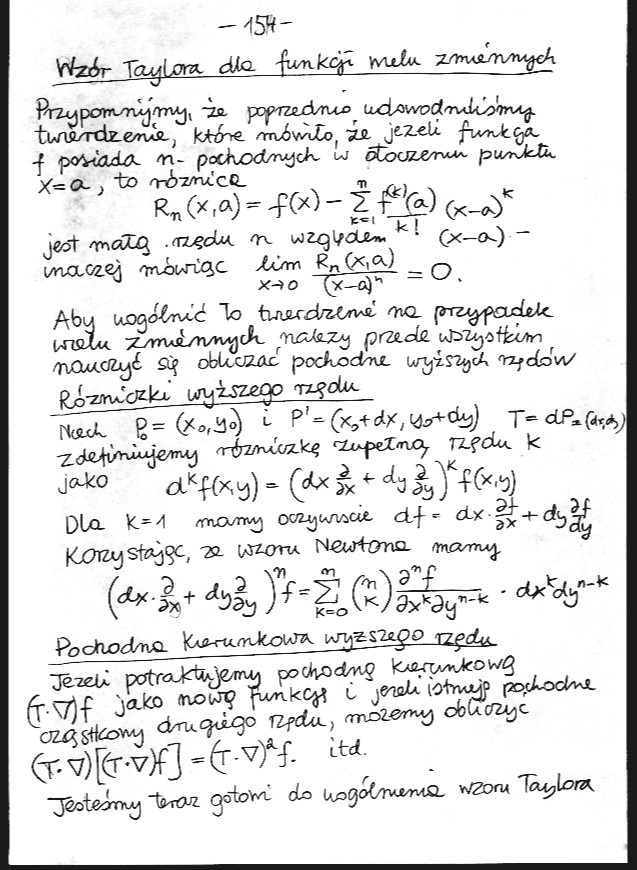 - 154 -
Wzór Taylora dla funkcji wielu zmiennych
Przypomnijmy, że poprzednio udowodniliśmy
twierdzenie, które mówiło, że jeżeli funkcja
f posiada n- pochodnych w otoczeniu punktu
x=a, to różnica
R_n(x,a) = f(x) - \sum_{k=1}^{n} \frac{f^{(k)}(a)}{k!} (x-a)^k
jest małą rzędu n względem (x-a) -
inaczej mówiąc lim_{x→0} \frac{R_n(x,a)}{(x-a)^n} = 0.
Aby uogólnić to twierdzenie na przypadek
wielu zmiennych należy przede wszystkim
nauczyć się obliczać pochodne wyższych rzędów
Różniczki wyższego rzędu
Niech P_0 = (x_0,y_0) i P' = (x_0+dx, y_0+dy) T = dP = (dx,dy)
Zdefiniujemy różniczkę zupełną rzędu k
jako d^k f(x,y) = (dx \frac{∂}{∂x} + dy \frac{∂}{∂y})^k f(x,y)
Dla k=1 mamy oczywiście df = dx \cdot \frac{∂f}{∂x} + dy \frac{∂f}{∂y}
Korzystając, ze wzoru Newtona mamy
(dx \cdot \frac{∂}{∂x} + dy \frac{∂}{∂y})^n f = \sum_{k=0}^{n} \binom{n}{k} \frac{∂^n f}{∂x^k ∂y^{n-k}} \cdot dx^k dy^{n-k}
Pochodna kierunkowa wyższego rzędu
Jeżeli potraktujemy pochodną kierunkową
(T·∇)f jako nową funkcję i jeżeli istnieje pochodne
cząstkowy drugiego rzędu, możemy obliczyć
(T·∇)[(T·∇)f] = (T·∇)²f. itd.
Jesteśmy teraz gotowi do uogólnienia wzoru Taylora